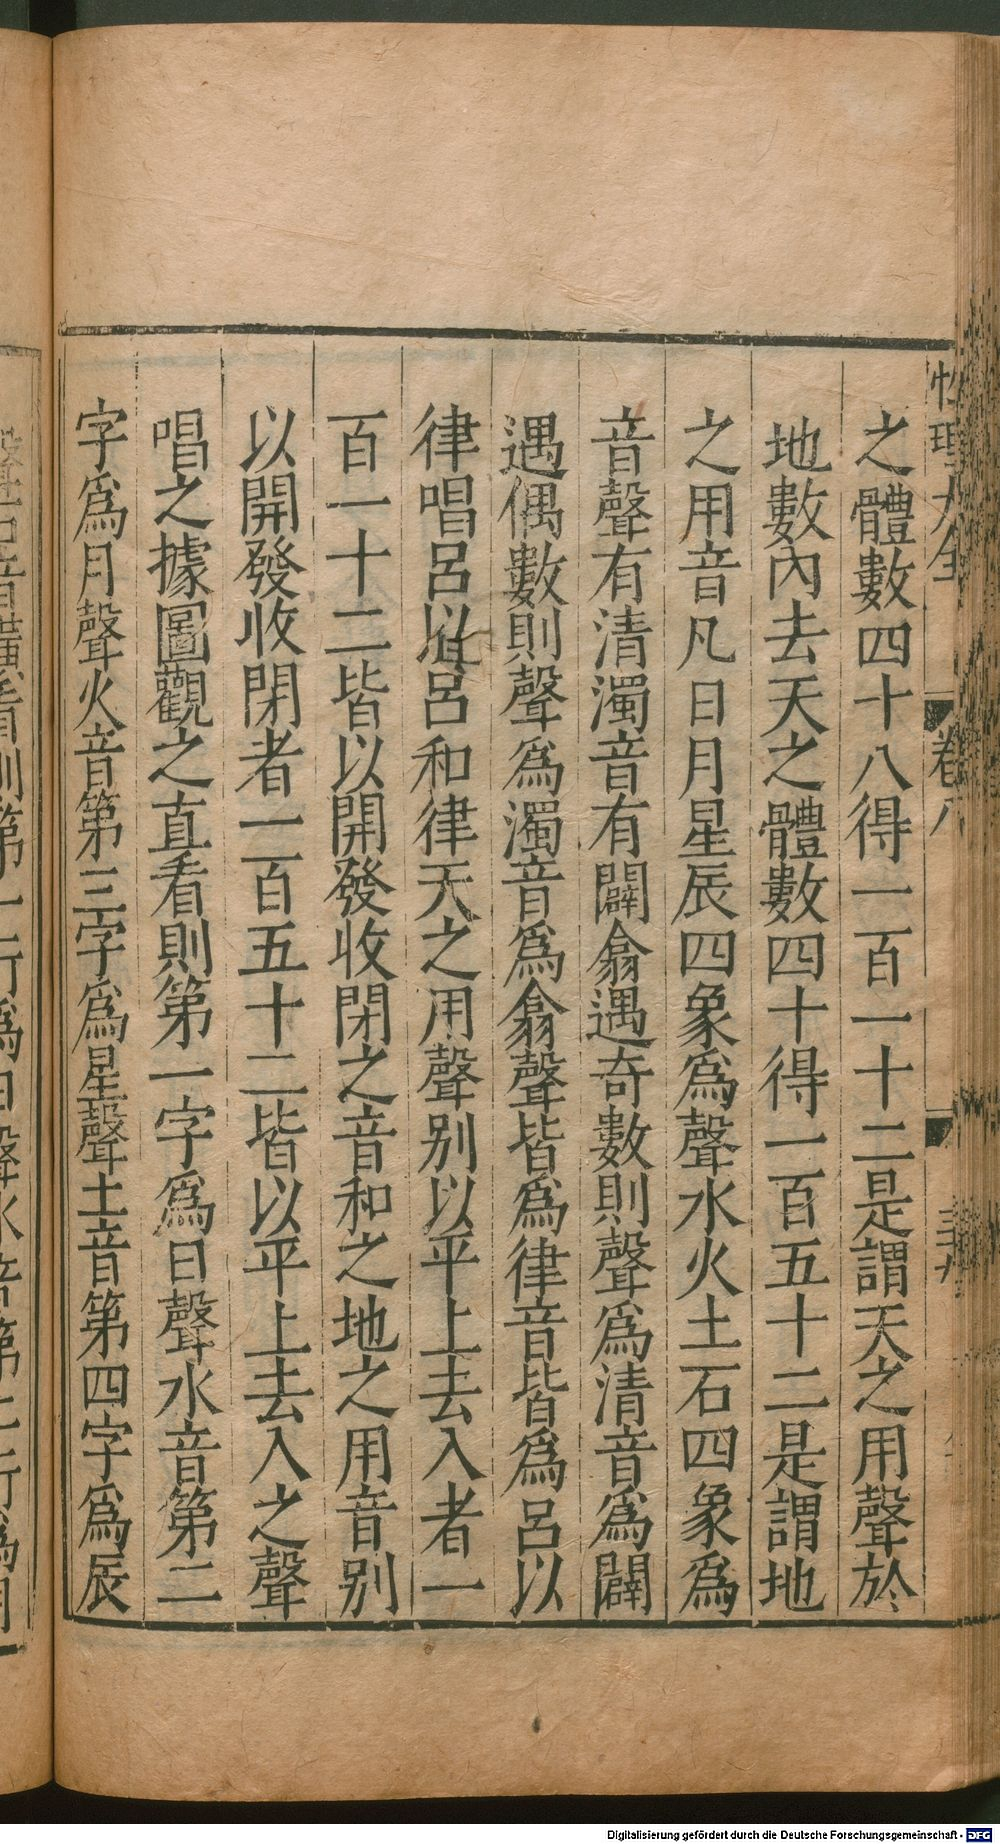 性理大全 卷八
之體數四十八得一百一十二是謂天之用聲於
地數內去天之體數四十得一百五十二是謂地
之用音凡日月星辰四象爲聲水火土石四象爲
音聲有清濁音有闢翕遇奇數則聲爲清音爲闢
遇偶數則聲爲濁音爲翕聲皆爲律音皆爲呂以
律唱呂以呂和律天之用聲別以平上去入者一
百一十二皆以開發收閉之音和之地之用音別
以開發收閉者一百五十二皆以平上去入之聲
唱之據圖觀之直看則第一字爲日聲水音第二
字爲月聲火音第三字爲星聲土音第四字爲辰
Digitalisierung gefördert durch die Deutsche Forschungsgemeinschaft - DFG